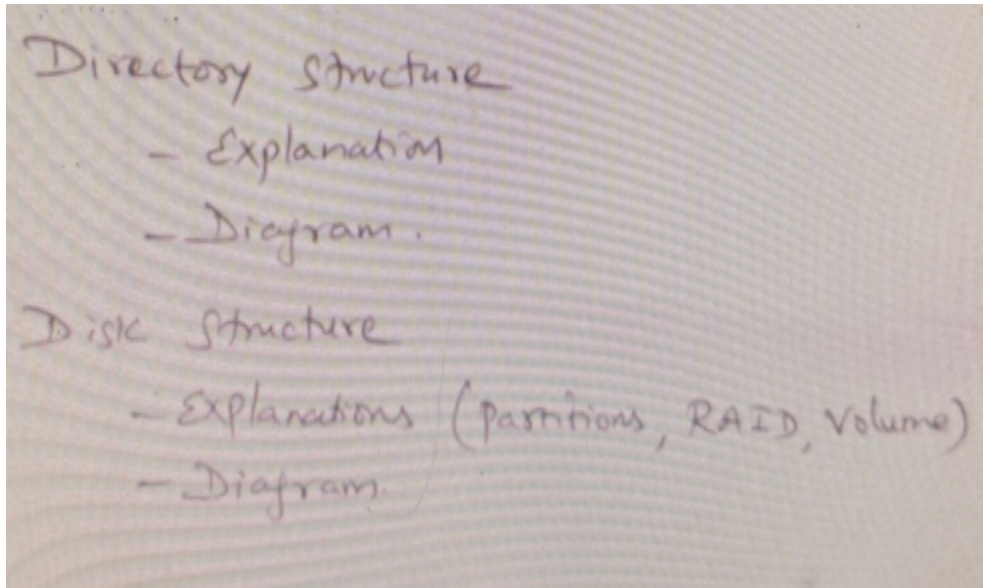 Directory Structure
- Explanation
- Diagram.
Disk Structure
- Explanations (Partitions, RAID, Volume)
- Diagram.